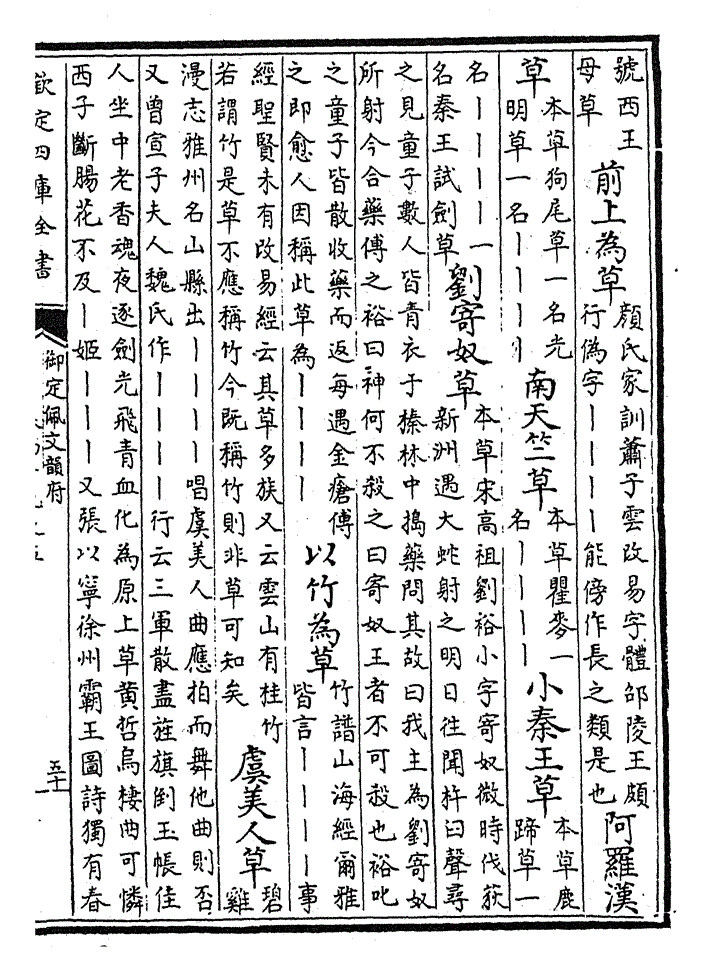 號西王
母草
前上為草
顔氏家訓蕭子雲改易字體邵陵王頗
行偽字｜｜｜｜能傍作長之類是也
阿羅漢
草
本草狗尾草一名光
明草一名｜｜｜｜
南天竺草
本草瞿麥一
名｜｜｜｜
小秦王草
本草鹿
蹄草一
名｜｜｜｜一
名秦王試劍草
劉寄奴草
本草宋高祖劉裕小字寄奴微時伐荻
新洲遇大蛇射之明日往聞杵臼聲尋
之見童子數人皆青衣于榛林中搗藥問其故曰我主為劉寄奴
所射今合藥傅之裕曰神何不殺之曰寄奴王者不可殺也裕叱
之童子皆散收藥而返每遇金瘡傅
之即愈人因稱此草為｜｜｜｜
以竹為草
竹譜山海經爾雅
皆言｜｜｜｜事
經聖賢未有改易經云其草多族又云雲山有桂竹
若謂竹是草不應稱竹今既稱竹則非草可知矣
虞美人草
碧
雞
漫志雅州名山縣出｜｜｜｜唱虞美人曲應拍而舞他曲則否
又曾宣子夫人魏氏作｜｜｜｜行云三軍散盡旌旗倒玉帳佳
人坐中老香魂夜逐劍光飛青血化為原上草黄哲烏棲曲可憐
西子斷腸花不及｜姬｜｜｜又張以寧徐州霸王圖詩獨有春
欽定四庫全書
御定佩文韻府